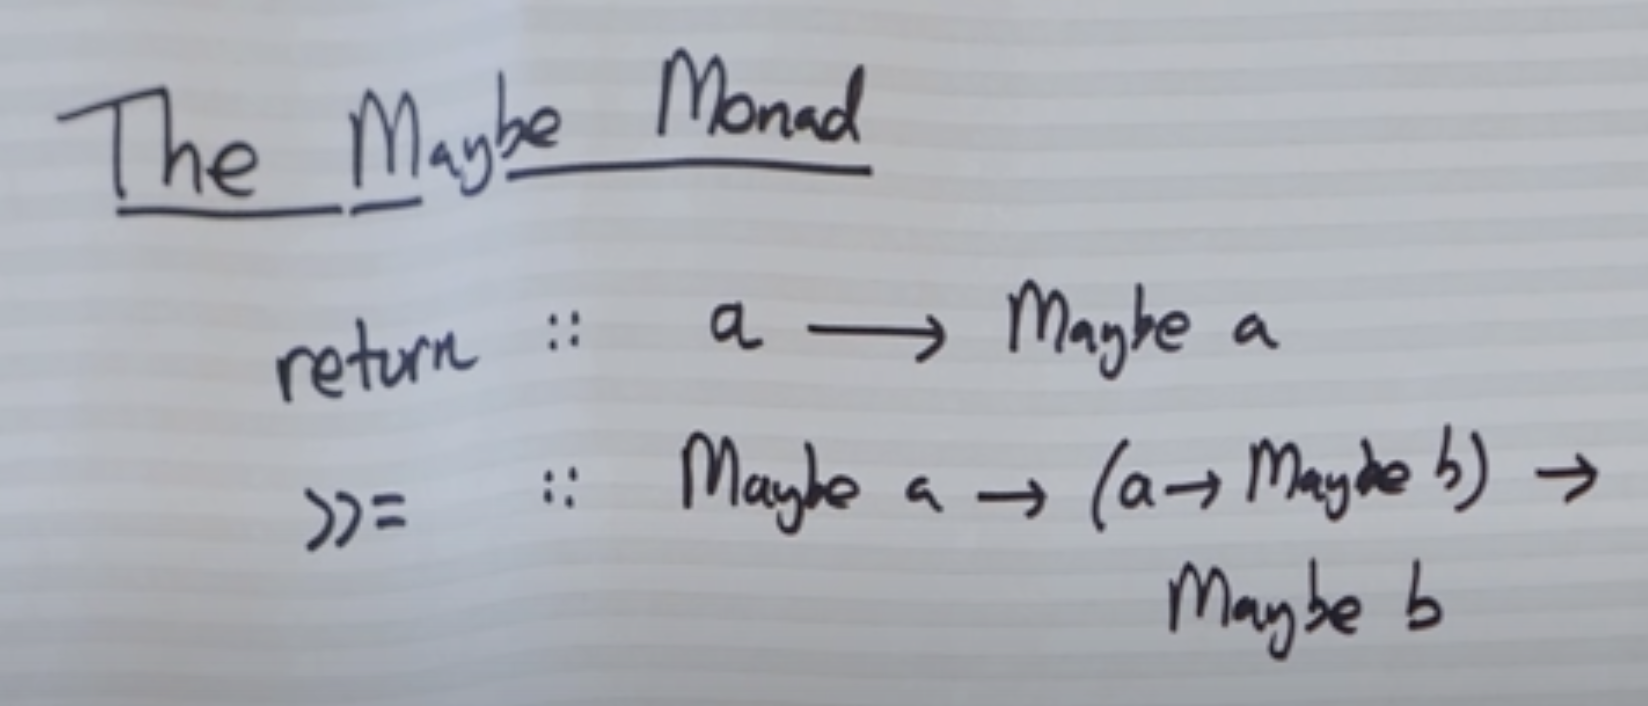 The Maybe Monad
return :: a → Maybe a
>>= :: Maybe a → (a → Maybe b) →
Maybe b